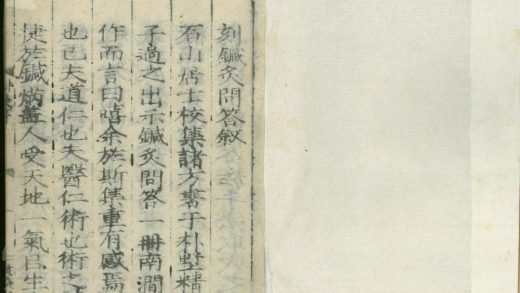 刻鍼灸問答叙
石山居士校集諸方書于朴墅精
子過之出示鍼灸問答一冊南澗
作而言曰嘻余於斯集重有感焉
也已夫道仁也夫醫仁術也術之
捷於鍼焫蓋人受天地一氣㠯生